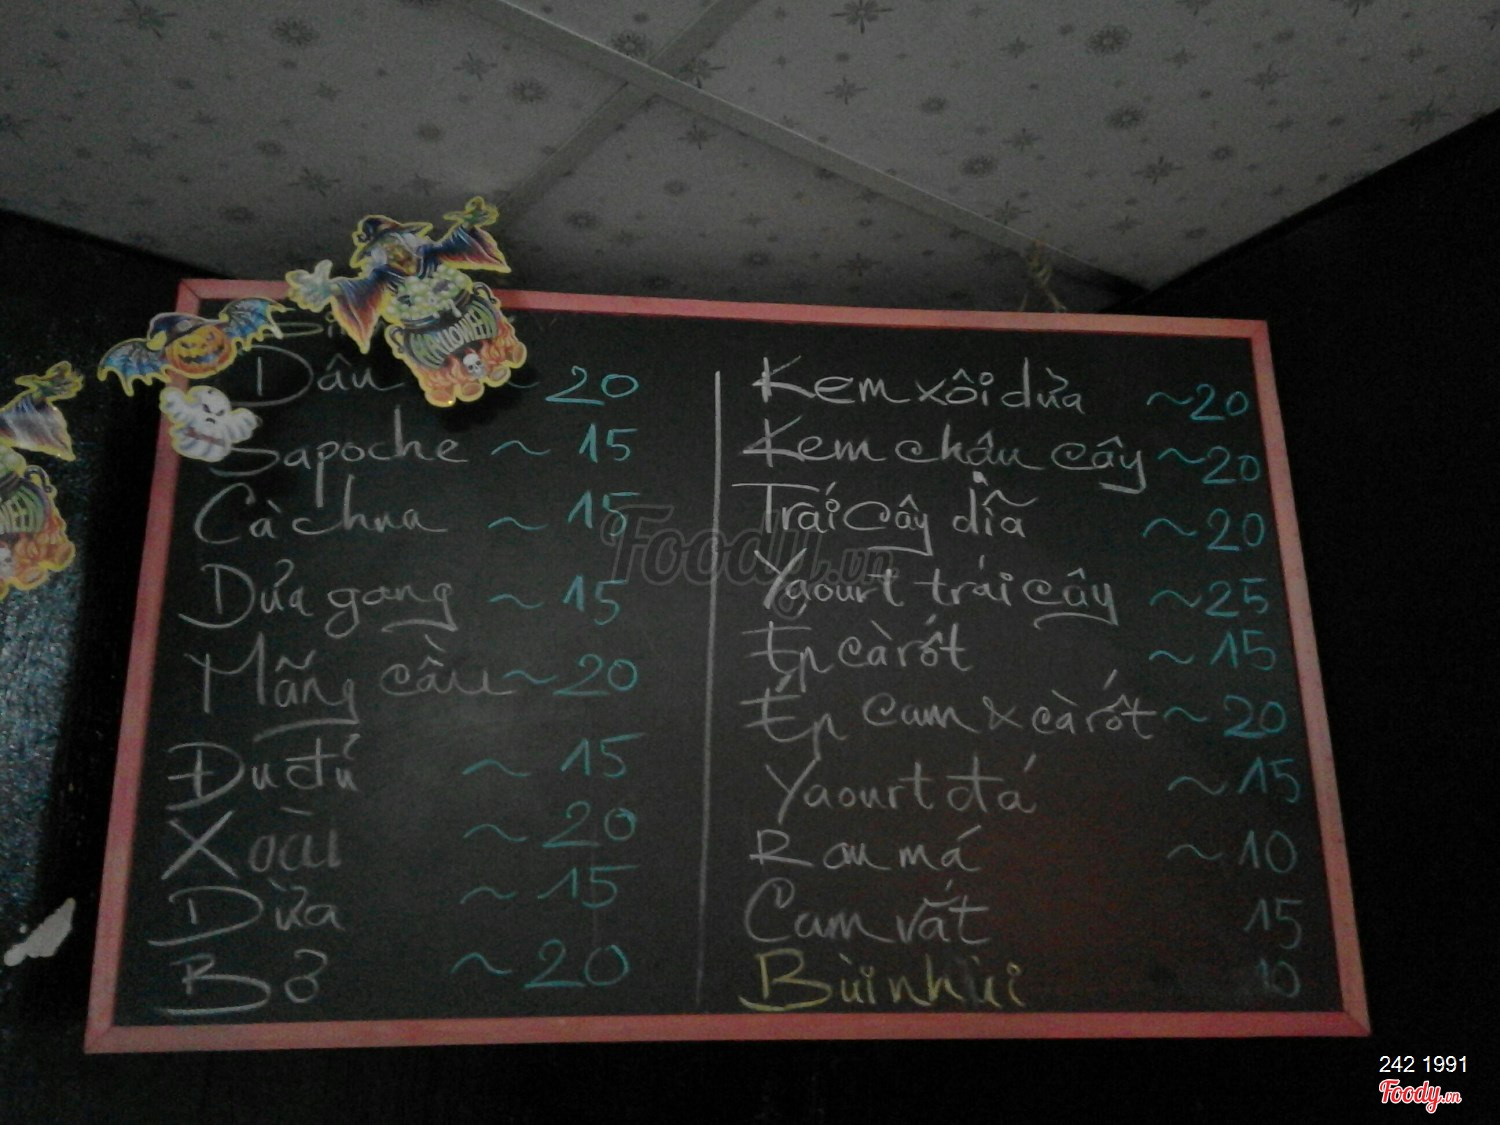 Dâu ~ 20
Sapoche ~ 15
Cà chua ~ 15
Dưa gang ~ 15
Mãng cầu ~ 20
Đu đủ ~ 15
Xoài ~ 20
Dừa ~ 15
Bơ ~ 20
Kem xôi dừa ~ 20
Kem chậu cây ~ 20
Trái cây dĩa ~ 20
Yaourt trái cây ~ 25
Ép cà rốt ~ 15
Ép cam & cà rốt ~ 20
Yaourt đá ~ 15
Rau má ~ 10
Cam vắt 15
Bùi nhùi 10
HALLOWEEN
Foody.vn
242 1991
Foody.vn